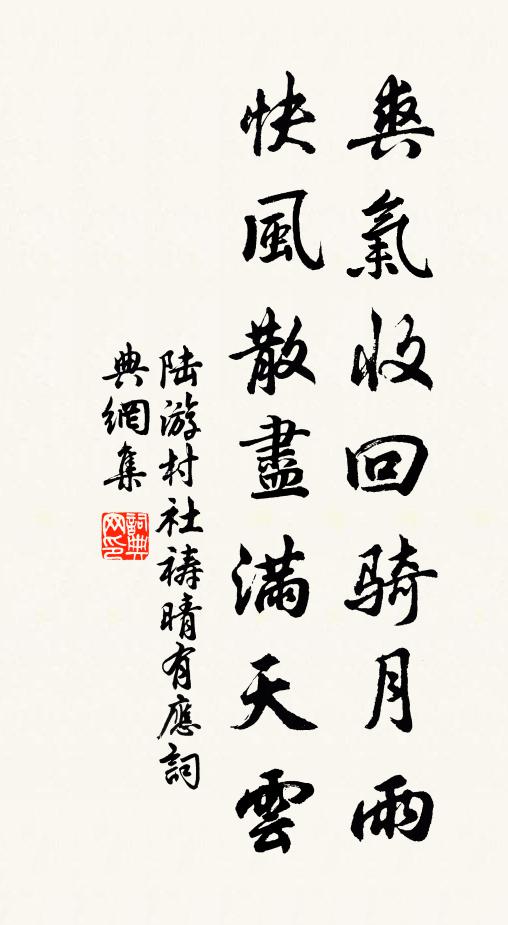 爽氣收回骑月雨
快風散盡滿天雲
陸游村社祷晴有應詞
典網集
詞典
网印